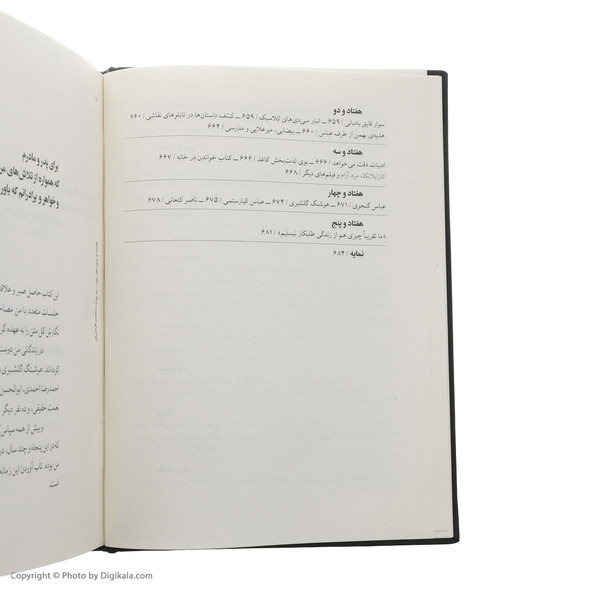 هفتاد و دو
سوار قایق بادبانی / ۶۵۹ ــ انبار سی‌دی‌های کلاسیک / ۶۵۹ ــ کشف داستان‌ها در تابلوهای نقاشی / ۶۶۰
هدیه‌ی بهمن از طرف عباس / ۶۶۰ ــ بیضایی، میرعلایی و مدرسی / ۶۶۴
هفتاد و سه
ادبیات دقت می‌خواهد / ۶۶۶ ــ بوی لذت‌بخش کاغذ / ۶۶۶ ــ کتاب خواندن در خانه / ۶۶۷
کازابلانکا، مرد آرام و فیلم‌های دیگر / ۶۶۸
هفتاد و چهار
عباس گنجوی / ۶۷۱ ــ هوشنگ گلشیری / ۶۷۴ ــ عباس کیارستمی / ۶۷۵ ــ ناصر کنعانی / ۶۷۸
هفتاد و پنج
«ما تقریباً چیزی هم از زندگی طلبکار نیستیم» / ۶۸۱
نمایه / ۶۸۴
برای پدر و مادرم
که همواره از تلاش‌های
و خواهر و برادرانم که یاور
این کتاب حاصل صبر و
جلسات متعدد با من
نگارش کل متن را به عهده
در زندگانی من
کرده‌اند. هوشنگ گلشیری،
احمدرضا احمدی، ابوالحسن
نعمت حقیقی، و ده نفر دیگر
و بیش از همه سپاس
که در این پنجاه و چند سال،
من بوده. تاب آوردن این
است.
Copyright © Photo by Digikala.com